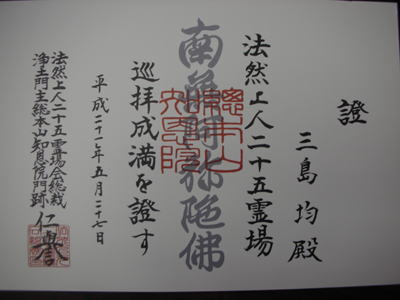 證
三島均殿
法然上人二十五霊場
南無阿弥陀佛
總本山
知恩院
巡拝成満を證す
平成二十一年五月二十七日
法然上人二十五霊場会総裁
浄土門主総本山知恩院門跡
仁譽